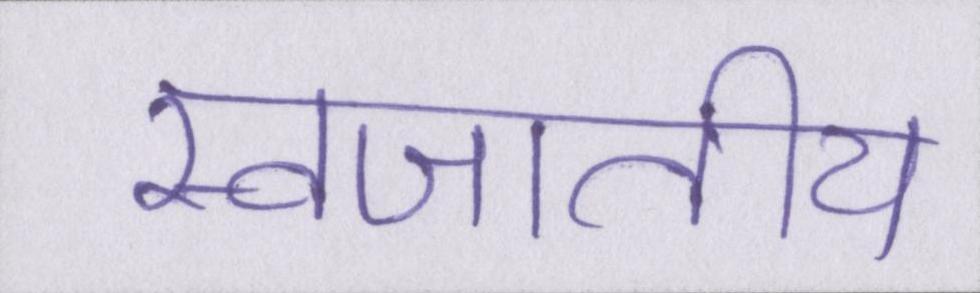 स्वजातीय